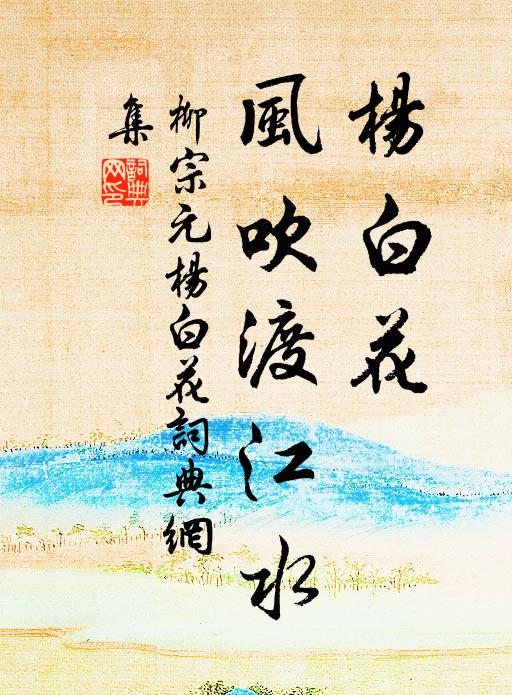 楊白花
風吹渡江水
柳宗元楊白花詞典網
集
詞典
網印